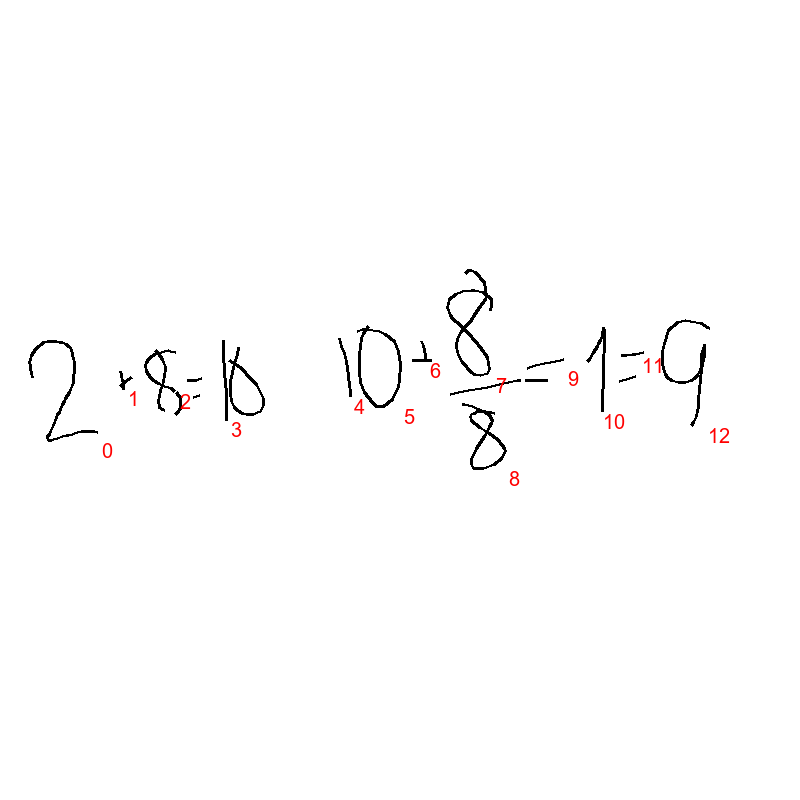 2 + 8 = 10 10 + 8/8 = 1 = 9
0 1 2 3 4 5 6 7 8 9 10 11 12